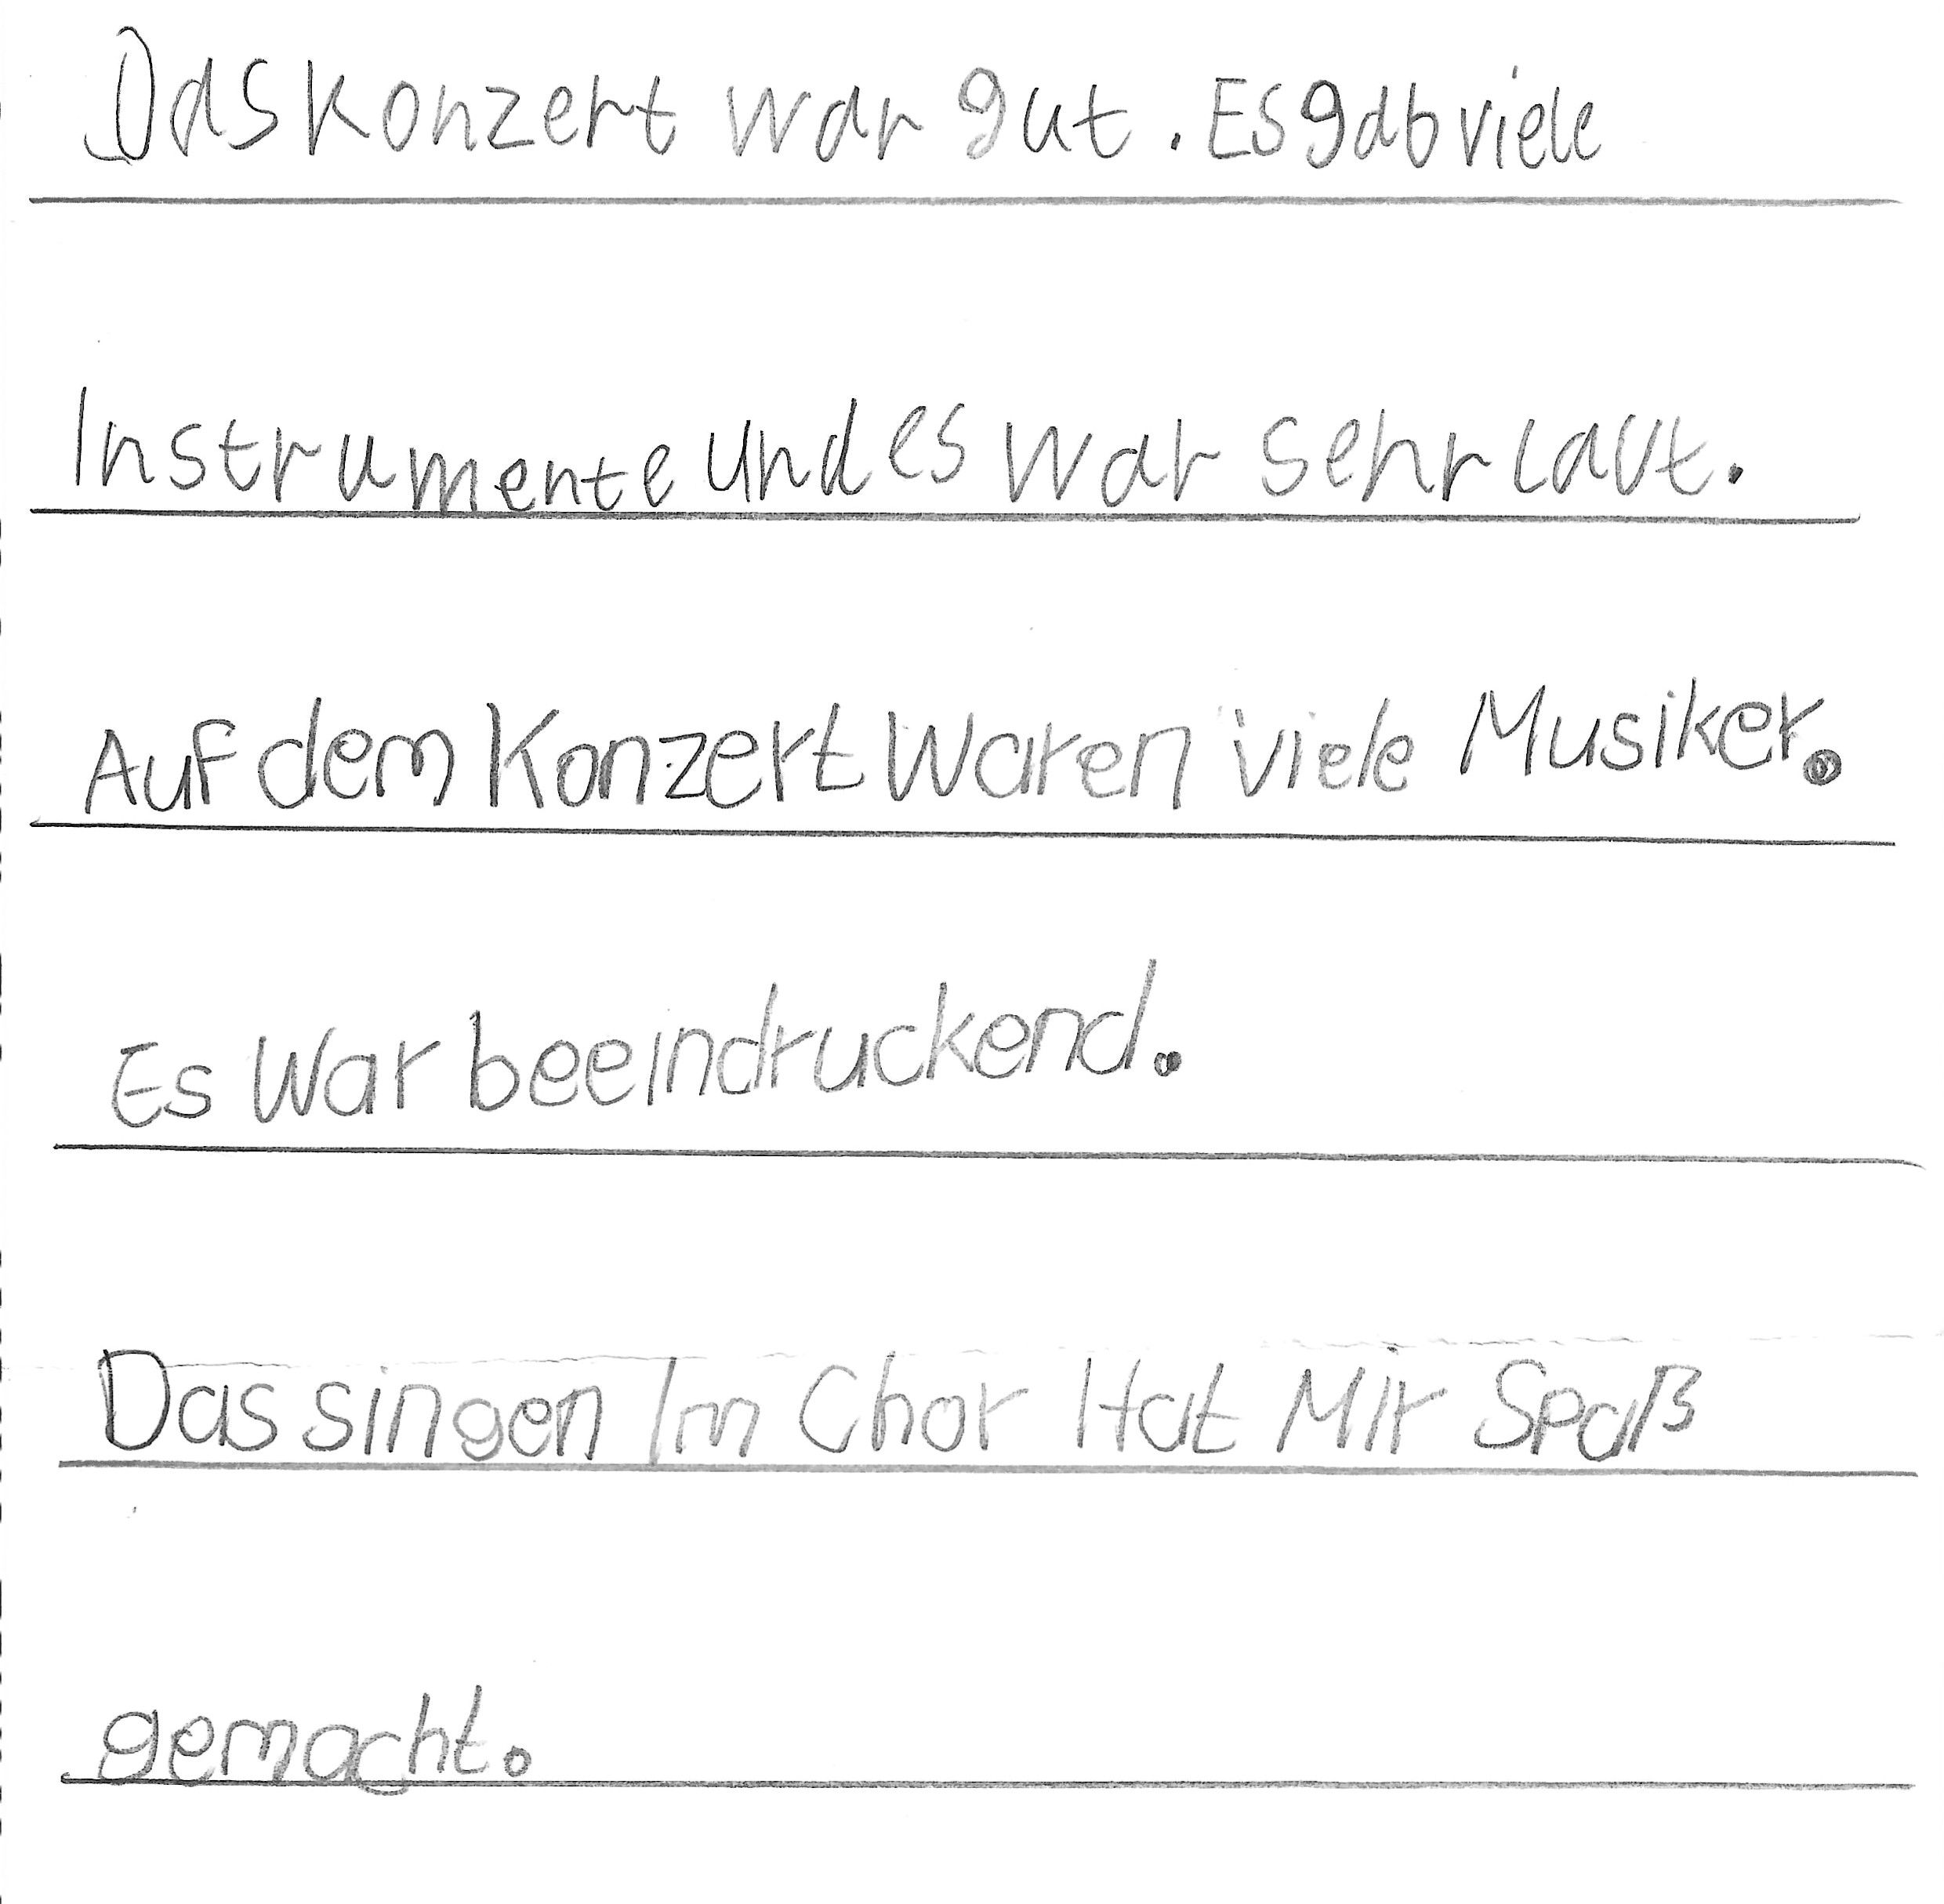 Das Konzert war gut. Es gab viele
Instrumente und es war sehr laut.
Auf dem Konzert Waren viele Musiker.
Es War beeindruckend.
Das singen Im Chor Hat Mir Spaß
gemacht.